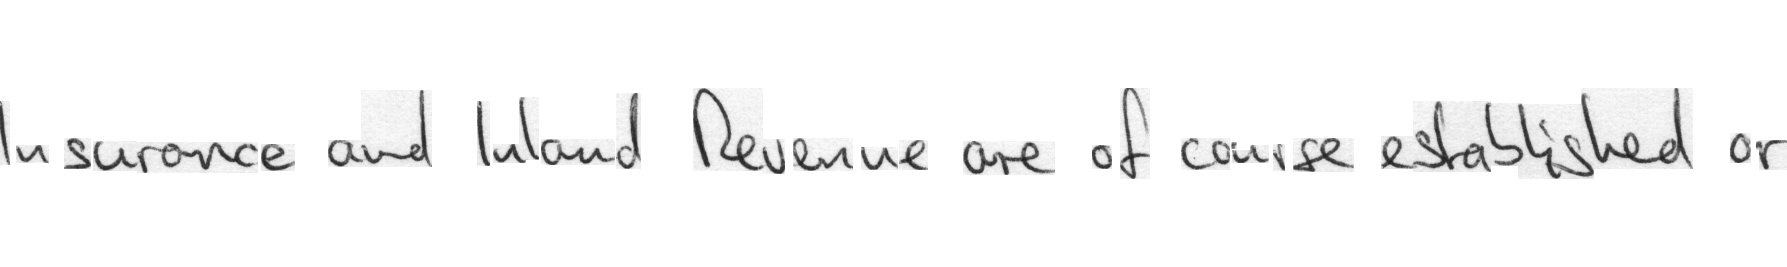 Insurance and Inland Revenue are of course established or